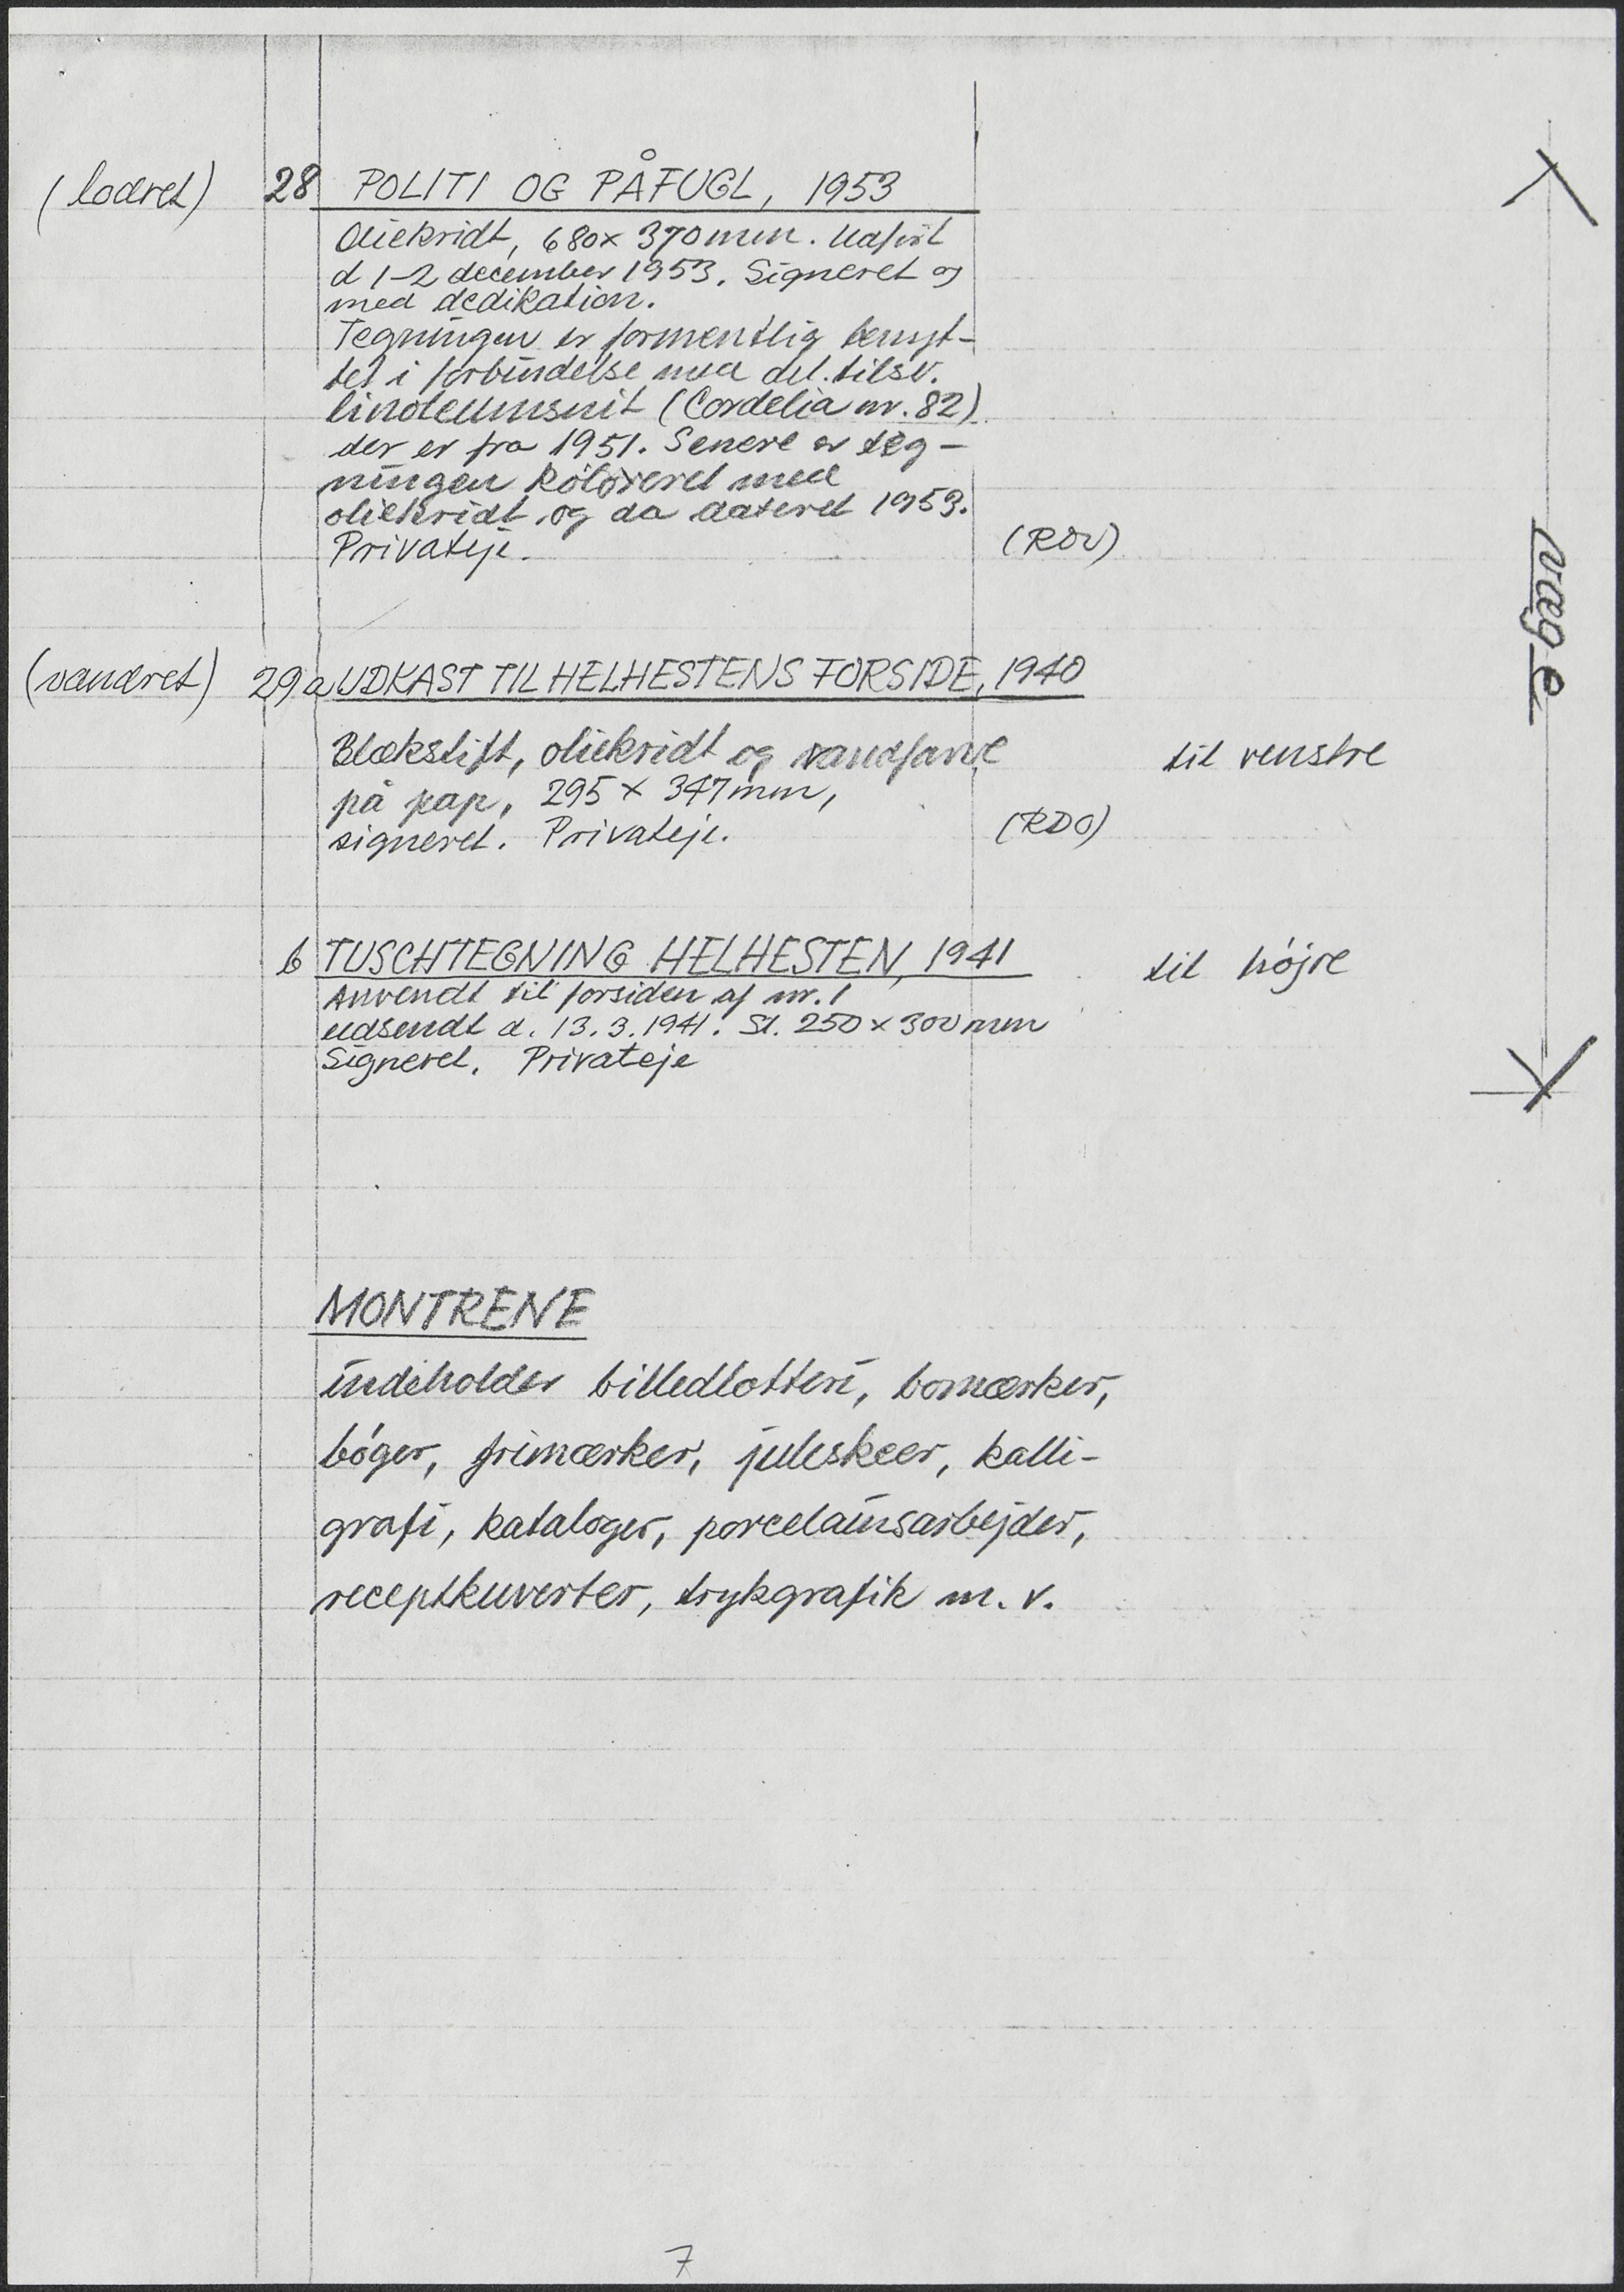 (lodret) 28 POLITI OG PÅFUGL, 1953
Oliekridt, 680x 370mm. Udført
d 1-2 december 1953. Signeret og
med dedikation.
Tegningen er formentlig benyt-
tet i forbindelse med det tilsv.
linoleumsnit (Cordelia nr. 82)
der er fra 1951. Senere er teg-
ningen koloreret med
oliekridt og da dateret 1953.
Privateje.
væg e
(vandret) 29a UDKAST TIL HELHESTENS FORSIDE, 1940
Blækstift, oliekridt og vandfarve til venstre
på pap, 295 x 347mm,
signeret. Privateje. (RDO)
b TUSCHTEGNING HELHESTEN, 1941 til højre
Anvendt til forsiden af nr. 1
udsendt d. 13.3.1941. St. 250 x 300mm
Signeret. Privateje
MONTRENE
indeholder billedlotteri, bomærker,
bøger, frimærker, juleskeer, kalli-
grafi, kataloger, porcelainsarbejder,
receptkuverter, trykgrafik m. v.
7